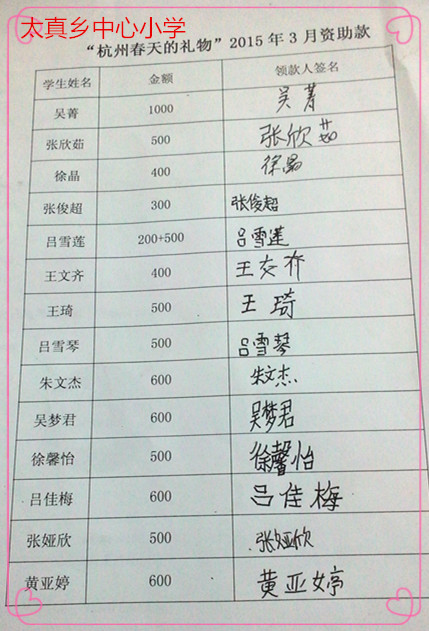 太真乡中心小学
“杭州春天的礼物”2015年3月资助款
学生姓名 金额 领款人签名
吴菁 1000 吴菁
张欣茹 500 张欣茹
徐晶 400 徐晶
张俊超 300 张俊超
吕雪莲 200+500 吕雪莲
王文齐 400 王文齐
王琦 500 王琦
吕雪琴 500 吕雪琴
朱文杰 600 朱文杰
吴梦君 600 吴梦君
徐馨怡 500 徐馨怡
吕佳梅 600 吕佳梅
张娅欣 500 张娅欣
黄亚婷 600 黄亚婷